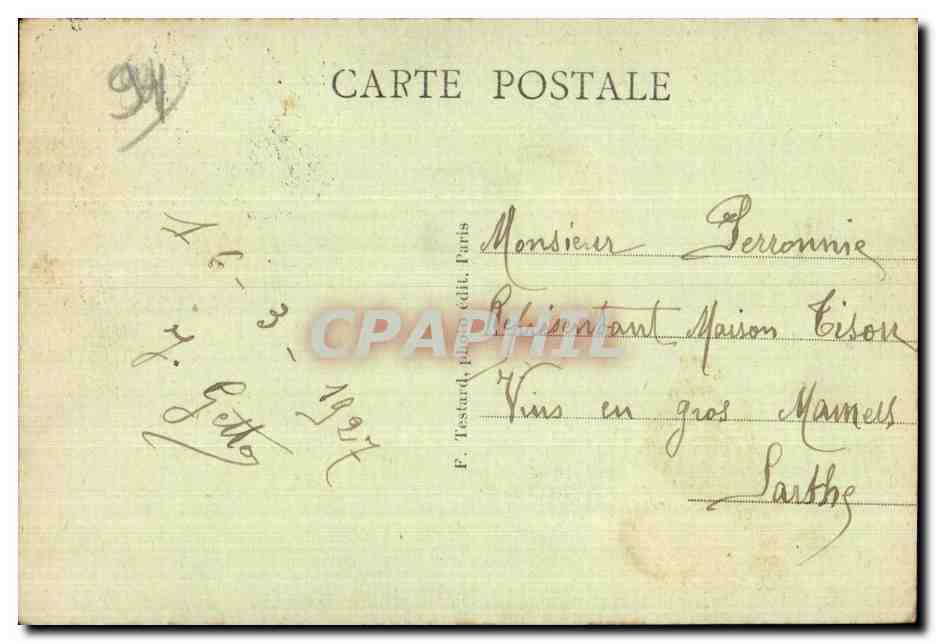 94
CARTE POSTALE
6-3-1927
J. Getto
F. Testard, photo-édit. Paris
Monsieur Perronnie
Représentant Maison Tison
Vins en gros Mamers
Sarthe
CPAPHIL